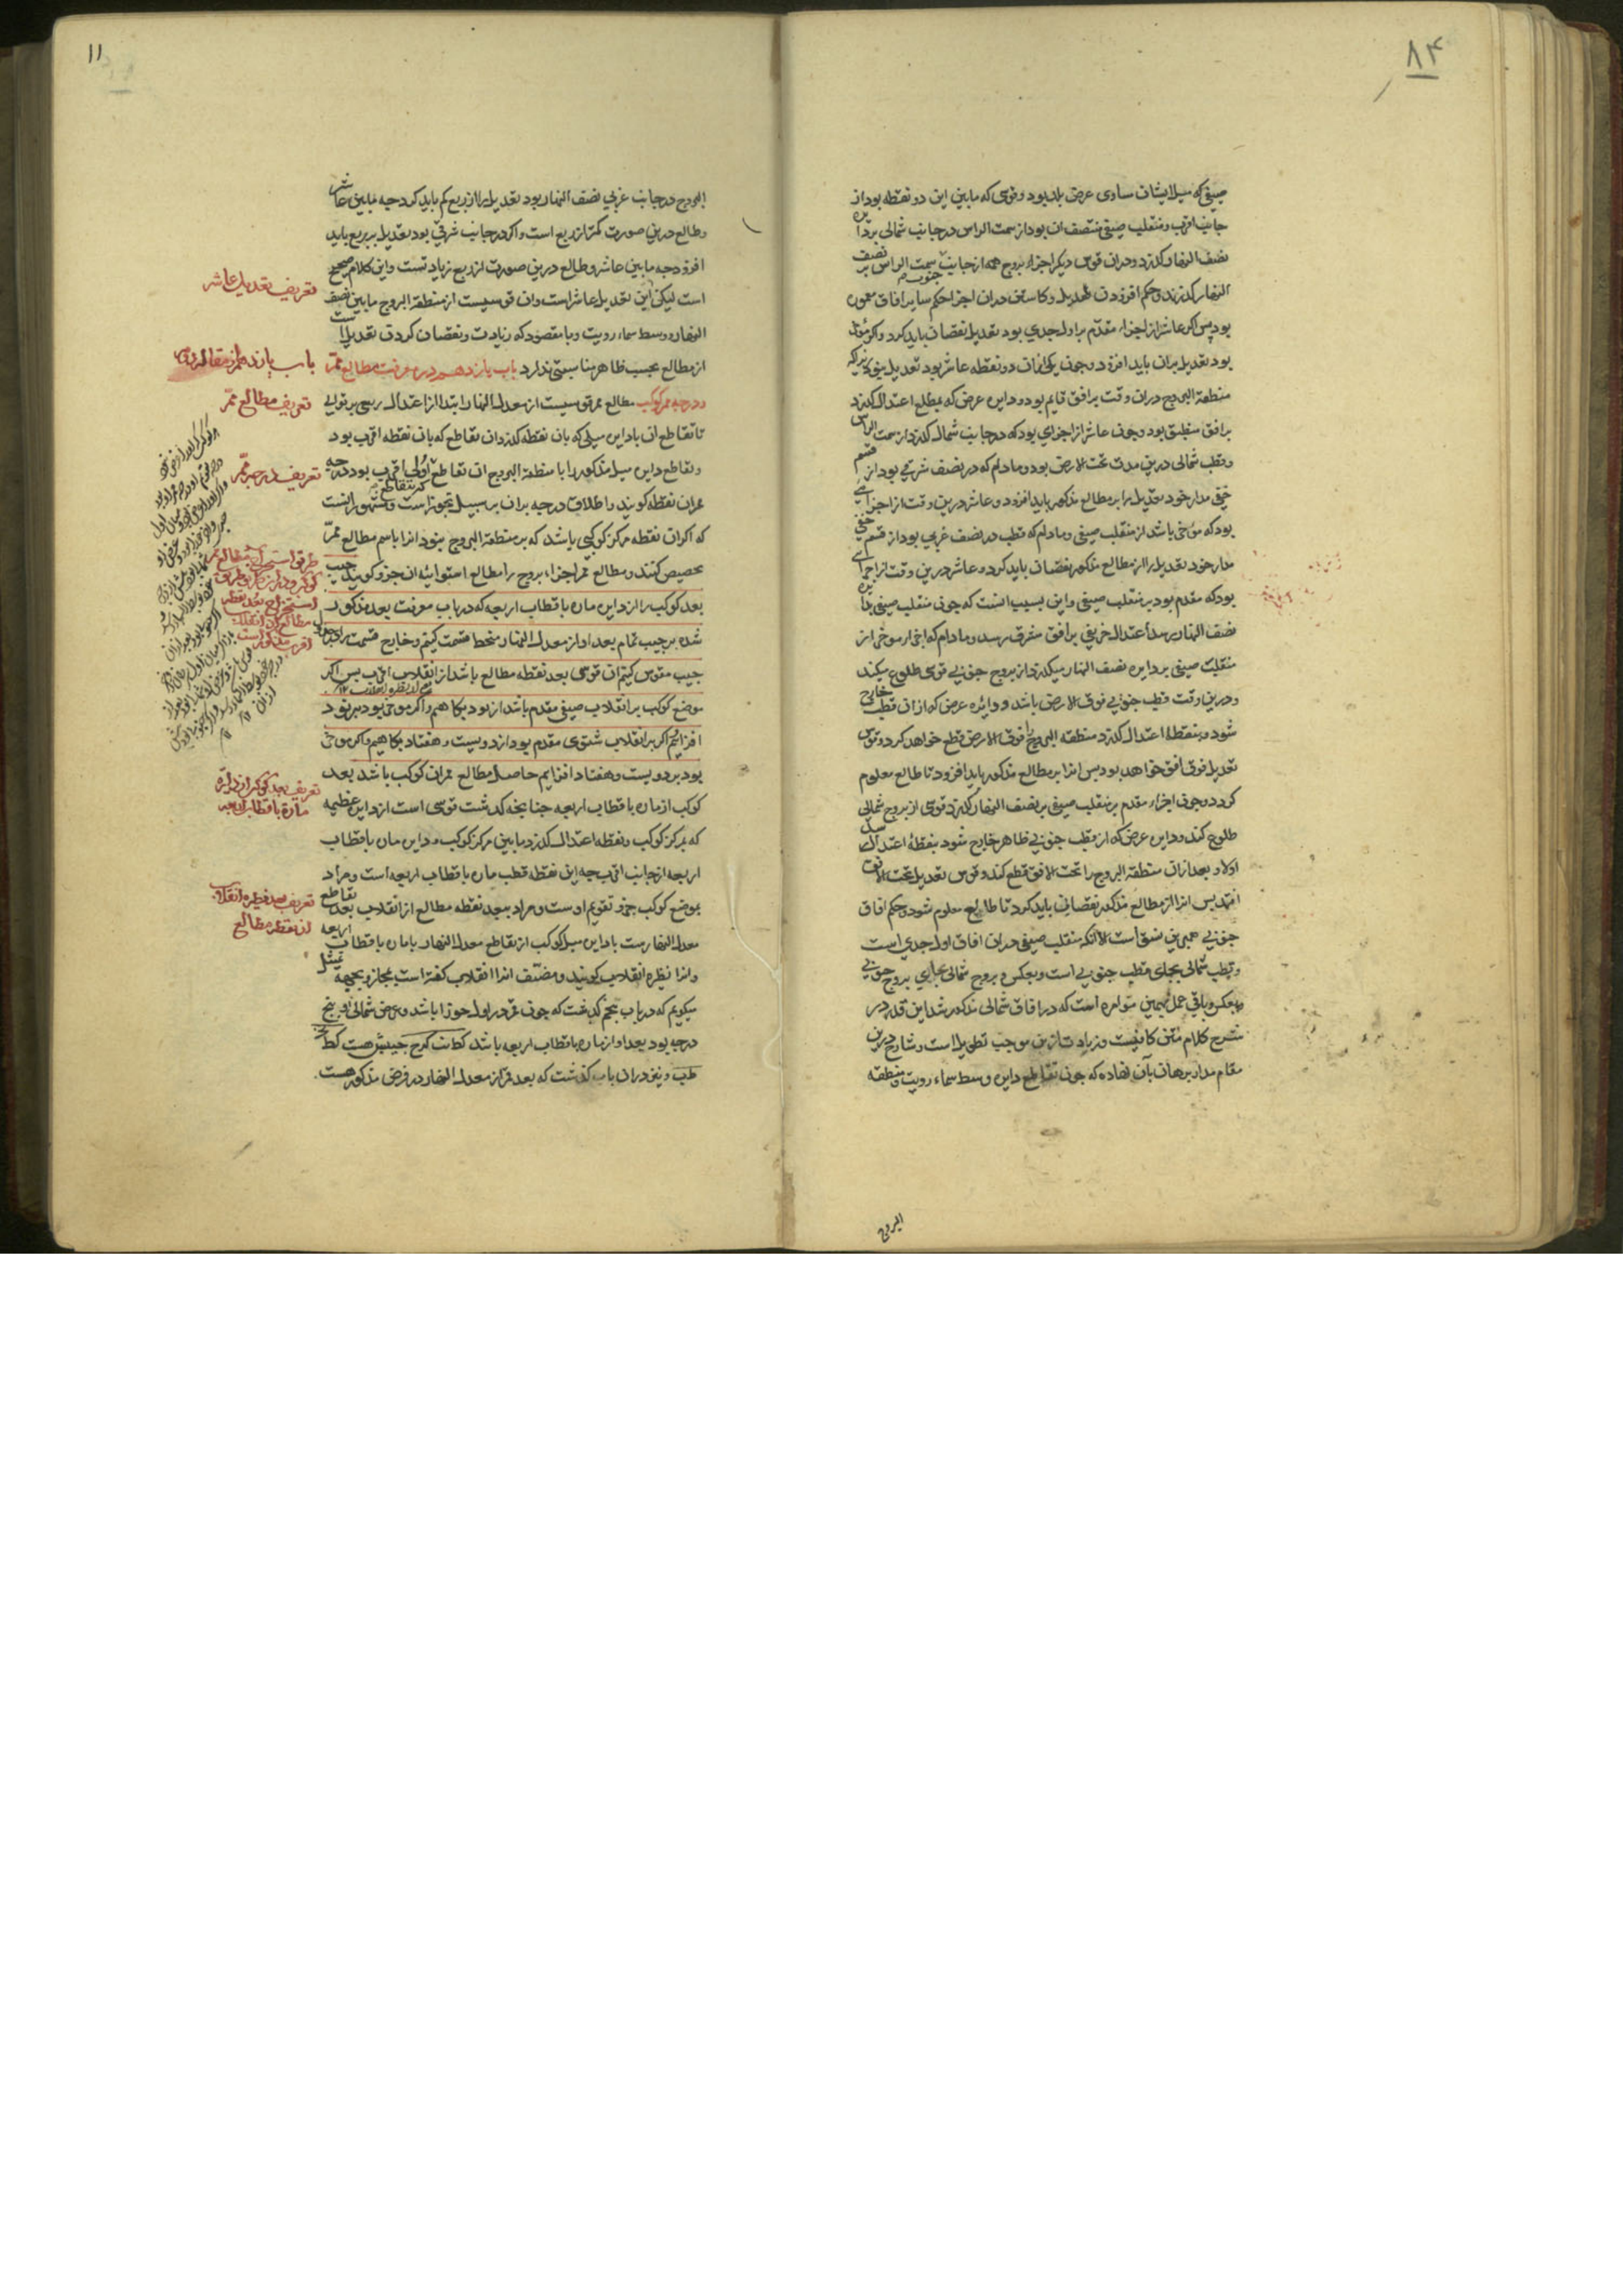 ۸۴
صیفی که میل ایشان مساوی عرض بلد بود و قوسی که مابین این دو نقطه بود از
جانب اقرب و منقلب صیفی منتصف ان بود از سمت الراس در جانب شمالی بر دایره
نصف النهار گذرد و دران قوس دیگر اجزاء بروج همه از جانب جنوب سمت الراس بر نصف
النهار گذرند و حکم افزودن تعدیل و کاستن دران اجزا حکم سایر افاق معمور
بود پس اگر عاشر از اجزاء مقدم بر اول جدی بود تعدیل نقصان باید کرد و اگر مؤخر
بود تعدیل بران باید افزود و چون یکی ازان دو نقطه عاشر بود تعدیل نبود زیرا که
منطقة البروج دران وقت بر افق قایم بود و دایره عرض که بمطلع اعتدال گذرد
بر افق منطبق بود و چون عاشر از اجزای بود که در جانب شمال گذرد از سمت الراس
و قطب شمالی درین مدت تحت الارض بود و مادام که در نصف شرقی بود از قسم
خفی مدار خود تعدیل را بر مطالع مذکور باید افزود و عاشر درین وقت از اجزای
بود که مؤخر باشد از منقلب صیفی و مادام که قطب در نصف غربی بود از قسم خفی
مدار خود تعدیل را از مطالع مذکور نقصان باید کرد و عاشر درین وقت از اجزای
بود که مقدم بود بر منقلب صیفی و این بسبب انست که چون منقلب صیفی بدایره
نصف النهار رسد اعتدال خریفی بر افق مشرق رسد و مادام که اجزاء مؤخر از
منقلب صیفی بر دایره نصف النهار میگذرد از بروج جنوبی قوسی طلوع میکند
و درین وقت قطب جنوبی فوق الارض باشد و دایره عرض که ازان قطب خارج
شود و بنقطه اعتدال گذرد منطقة البروج را فوق الارض قطع خواهد کرد و قوس
تعدیل فوق افق خواهد بود پس انرا بر مطالع مذکور باید افزود تا طالع معلوم
گردد و چون اجزاء مقدم بر منقلب صیفی بر نصف النهار گذرد قوسی از بروج شمالی
طلوع کند و دایره عرض که از قطب جنوبی ظاهر خارج شود بنقطه اعتدال رسد
اولا و بعد ازان منطقة البروج را تحت الافق قطع کند و قوس تعدیل تحت الافق
افتد پس انرا از مطالع مذکور نقصان باید کرد تا طالع معلوم شود و حکم افاق
جنوبی همین نسق است الا آنکه منقلب صیفی دران افاق اول جدی است
و قطب شمالی بجای قطب جنوبی است و بعکس و بروج شمالی بجای بروج جنوبی
و بعکس و باقی عمل بهمین دستور است که در افاق شمالی مذکور شد این قدر در
شرح کلام متن کافیست و زیادت ازین موجب تطویل است و شارح درین
مقام مدار برهان بآن نهاده که چون تقاطع دایره وسط سماء رویت و منطقه
البروج
۱۱
البروج در جانب غربی نصف النهار بود تعدیل را از ربع کم باید کرد چه مابین عاشر
و طالع درین صورت کمتر از ربع است و اگر در جانب شرقی بود تعدیل بر ربع باید
افزود چه مابین عاشر و طالع درین صورت از ربع زیادتست و این کلام صحیح
است لیکن این تعدیل عاشر است و ان قوسیست از منطقة البروج مابین نصف
النهار و وسط سماء رویت و با مقصود که زیادت و نقصان کردن تعدیل است
از مطالع بحسب ظاهر مناسبتی ندارد باب یازدهم در معرفت مطالع ممرّ
و درجه ممر کوکب مطالع ممر قوسیست از معدل النهار ابتدا از اعتدال ربیعی بر توالی
تا تقاطع ان با دایره میلی که بان نقطه گذرد ان تقاطع که بان نقطه اقرب بود
و تقاطع دایره میل مذکور را با منطقة البروج ان تقاطع که بتقاطع اولی اقرب بود درجه
ممر ان نقطه گویند و اطلاق درجه بران بر سبیل تجوز است و مشهور انست
که اگر ان نقطه مرکز کوکبی باشد که بر منطقة البروج نبود انرا باسم مطالع ممرّ
تخصیص کنند و مطالع ممر اجزاء بروج را مطالع استوائیه ان جزو گویند جیب
بعد کوکب را از دایره ماره باقطاب اربعه که در باب معرفت بعد مذکور
شده بر جیب تمام بعد او از معدل النهار منحط قسمت کنیم و خارج قسمت را
جیب مقوس کنیم ان قوس بعد نقطه مطالع باشد از انقلاب اقرب پس اگر
موضع کوکب بر انقلاب صیفی مقدم باشد از نود بکاهیم و اگر مؤخر بود بر نود
افزائیم و اگر بر انقلاب شتوی مقدم بود از دویست و هفتاد بکاهیم و اگر مؤخر
بود بر دویست و هفتاد افزایم حاصل مطالع ممر ان کوکب باشد بعد
کوکب از ماره باقطاب اربعه چنانچه گذشت قوسی است از دایره عظیمه
که بمرکز کوکب و نقطه اعتدال گذرد مابین مرکز کوکب و دایره ماره باقطاب
اربعه از جانب اقرب چه این نقطه قطب ماره باقطاب اربعه است و مراد
بموضع کوکب جزو تقویم اوست و مراد ببعد نقطه مطالع از انقلاب بعد تقاطع
معدل النهارست با دایره میل کوکب از تقاطع معدل النهار با ماره باقطاب اربعه
و انرا نظیره انقلاب گویند و مصنف انرا انقلاب گفته است بمجاز و بجهة تمثیل
میگویم که در باب پنجم گذشت که چون قمر در اول جوزا باشد و عرض شمالی او پنج
درجه بود بعد او از ماره باقطاب اربعه باشد
و نیز دران باب گذشت که بعد قمر از معدل النهار در فرض مذکور هست
تعریف تعدیل عاشر
باب یازدهم از مقاله
تعریف مطالع ممرّ
تعریف درجه ممرّ
تعریف بعد کوکب از دایره
ماره باقطاب اربعه
تعریف بعد نظیره انقلاب
از نقطه مطالع